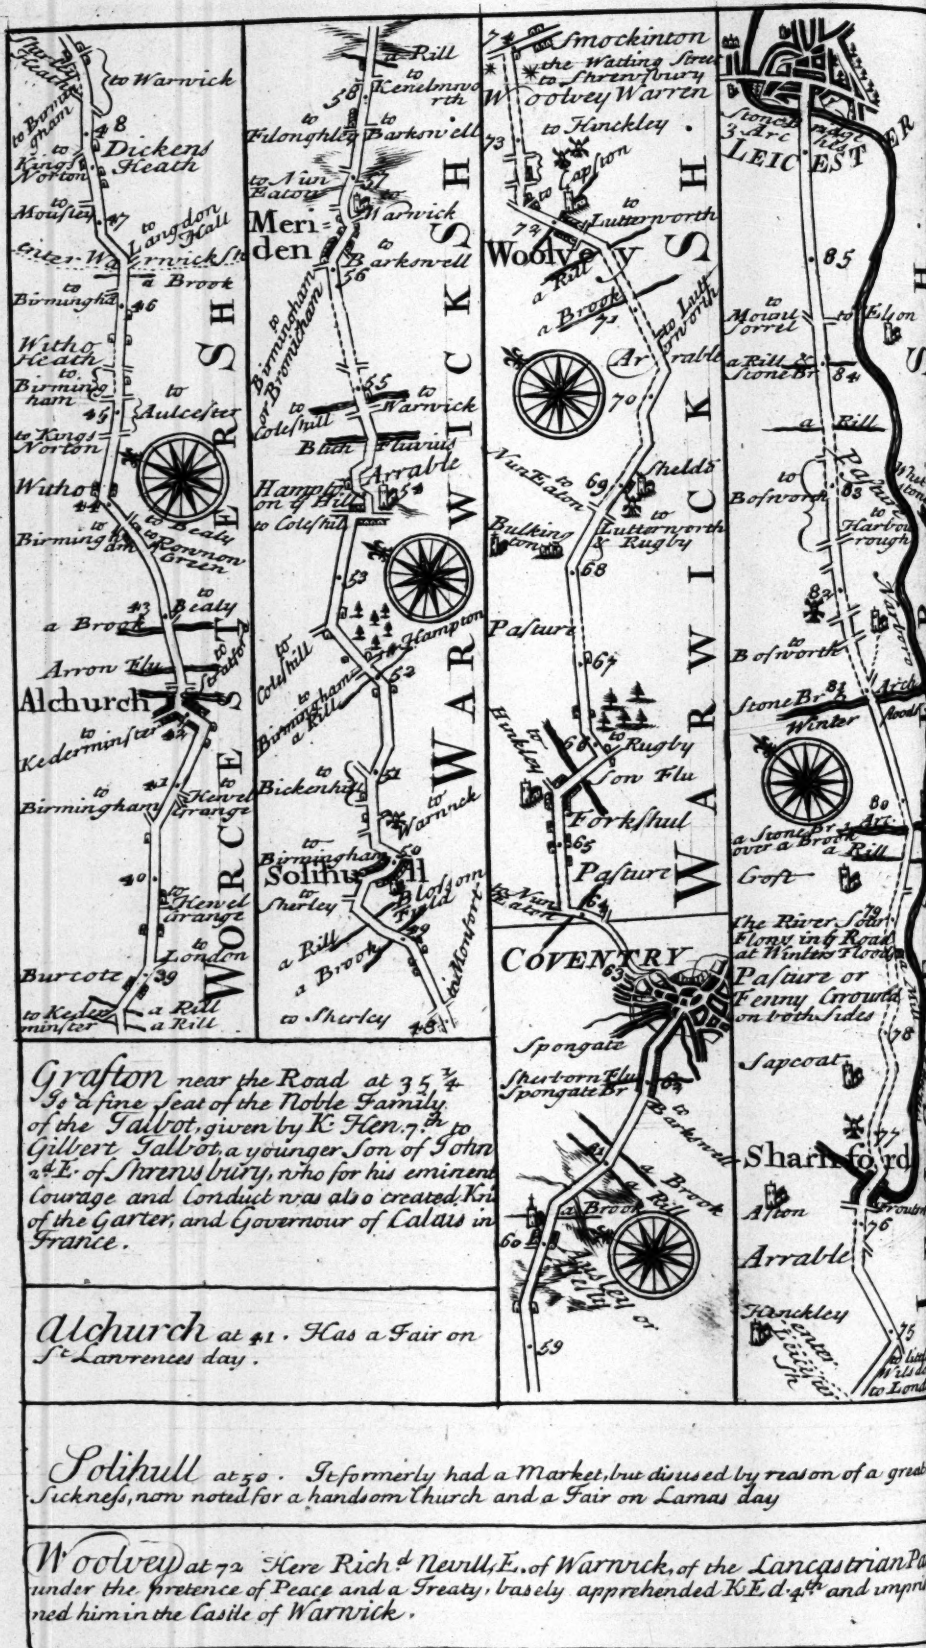 Sherley
Heath
to Warwick
to Birmin
gham
48
Dickens
Heath
to
Kings
Norton
to
Mousley
47
to
Langdon
Hall
enter Warwicksh
a Brook
to
Birmingha
46
Witho
Heath
to
Birming
ham
45
to
Aulcester
to Kings
Norton
Witho
44
to
Birmingh
am
to Bealy
to Rownon
Green
43
to
Bealy
a Brook
Arron Flu
to
Stratford
Alchurch
42
to
Kederminster
41
to
Birmingham
to
Hewel
Grange
40
to
Hewel
Grange
to
London
Burcote
39
to Keder
minster
a Rill
a Rill
WORCESTERSHR
a Rill
58
to
Kenelmwo
rth
to
Filonghley
to
Barkswell
57
to Nun
Eaton
to
Warwick
Meri=
den
to
Barkswell
56
to
Birmingham
or Bromicham
55
to
Coleshill
to
Warwick
Blith Fluvius
Arrable
Hampton
on y Hill
54
to Coleshill
53
to Hampton
to
Coleshill
52
to
Birmingham
a Rill
51
to
Bickenhill
to
Warwick
to
Birmingham
50
Solihull
to
Sherley
Blossom
Field
49
a Rill
a Brook
to Monfort
to Sherley
48
WARWICKSH
74
Smockinton
the Watling Street
to Shrewsbury
Woolvey Warren
73
to Hinckley
to Capston
to
Lutterworth
72
Woolvey
a Rill
a Brook
71
to Lutt
erworth
Arrable
70
to
Nun Eaton
69
Sheldo
to
Lutterworth
& Rugby
Bulking
ton
68
Pasture
67
to
Hinkley
66
to
Rugby
Sow Flu
Forkshul
65
Pasture
to Nun
Eaton
64
WARWICKSH
COVENTRY
63
Spongate
Sherborn Flu
Spongate Br
62
to
Barkswell
61
a Brook
a Rill
a Brook
60
59
Stone bridge
3 Arc
LEICESTER
85
to
Mount
Sorrel
to Elson
a Rill &
Stone Br
84
a Rill
Pasture
83
to
Bosworth
to
Harbo
rough
82
to
Bosworth
Narboro
Stone Br
81
Arch
Winter
floods
80
a Stone Br 2 Arc
over a Brook
a Rill
Croft
79
The River Sour
Flows in y Road
at Winters Floods
Pasture or
Fenny Ground
on both Sides
78
Sapcoat
77
Sharnford
Aston
76
Arrable
Hinckley
75
enter
Leicester
Sh
to Lond
Grafton near the Road at 35 ¼
Is a fine Seat of the Noble Family
of the Talbot, given by K. Hen. 7th to
Gilbert Talbot, a younger Son of John
2d E. of Shrewsbury, who for his eminent
Courage and Conduct was also created Kni
of the Garter, and Governour of Calais in
France.
Alchurch at 41. Has a Fair on
St Lawrences day.
Solihull at 50. It formerly had a Market, but disused by reason of a great
Sickness, now noted for a handsom Church and a Fair on Lamas day
Woolvey at 72 Here Richd Nevill, E. of Warwick, of the Lancastrian Pa
under the pretence of Peace and a Treaty, basely apprehended K Ed. 4th and impri
ned him in the Castle of Warwick.